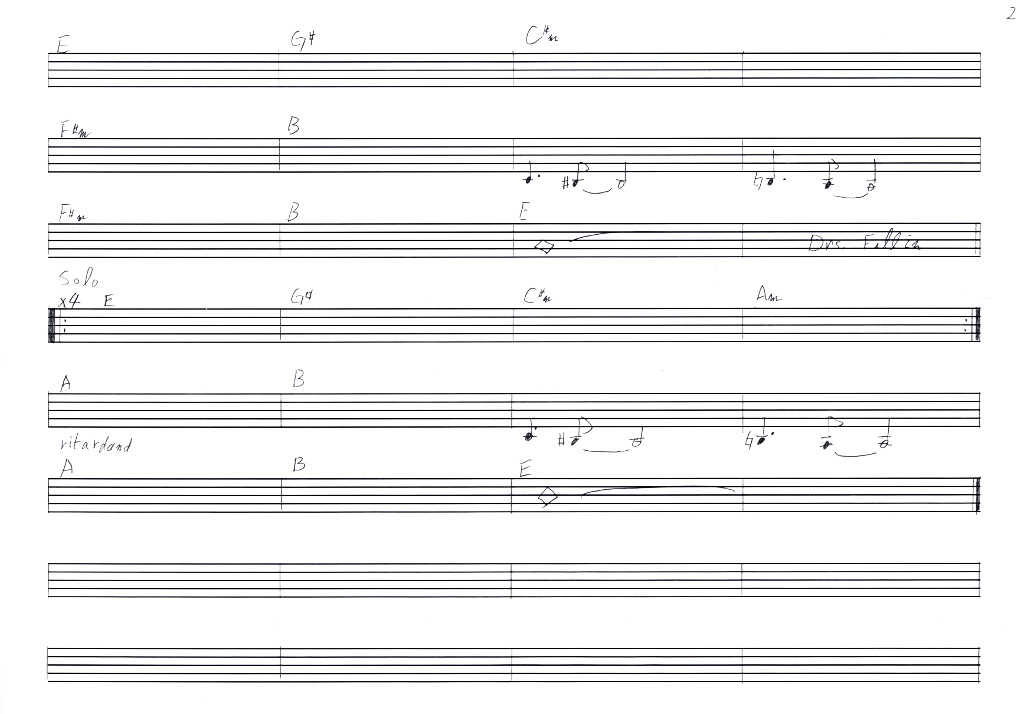 2
E G# C#m
F#m B
F#m B E
Drs. Fill in
Solo
x4 E G# C#m Am
A B
ritardand
A B E